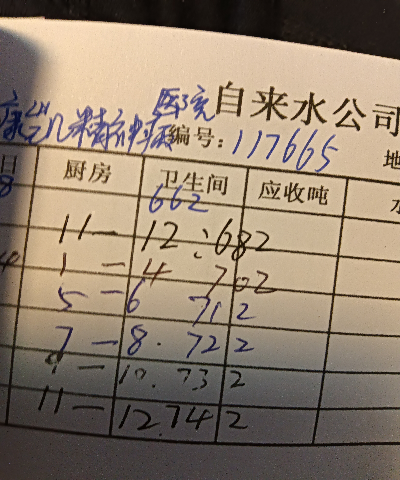 医院 自来水公司
精神病 编号: 117665 地
日 厨房 卫生间 应收吨 水
8 662
11— 12: 682
1 — 4 702
5 — 6 712
7 — 8. 722
9 — 10. 732
11— 12. 742